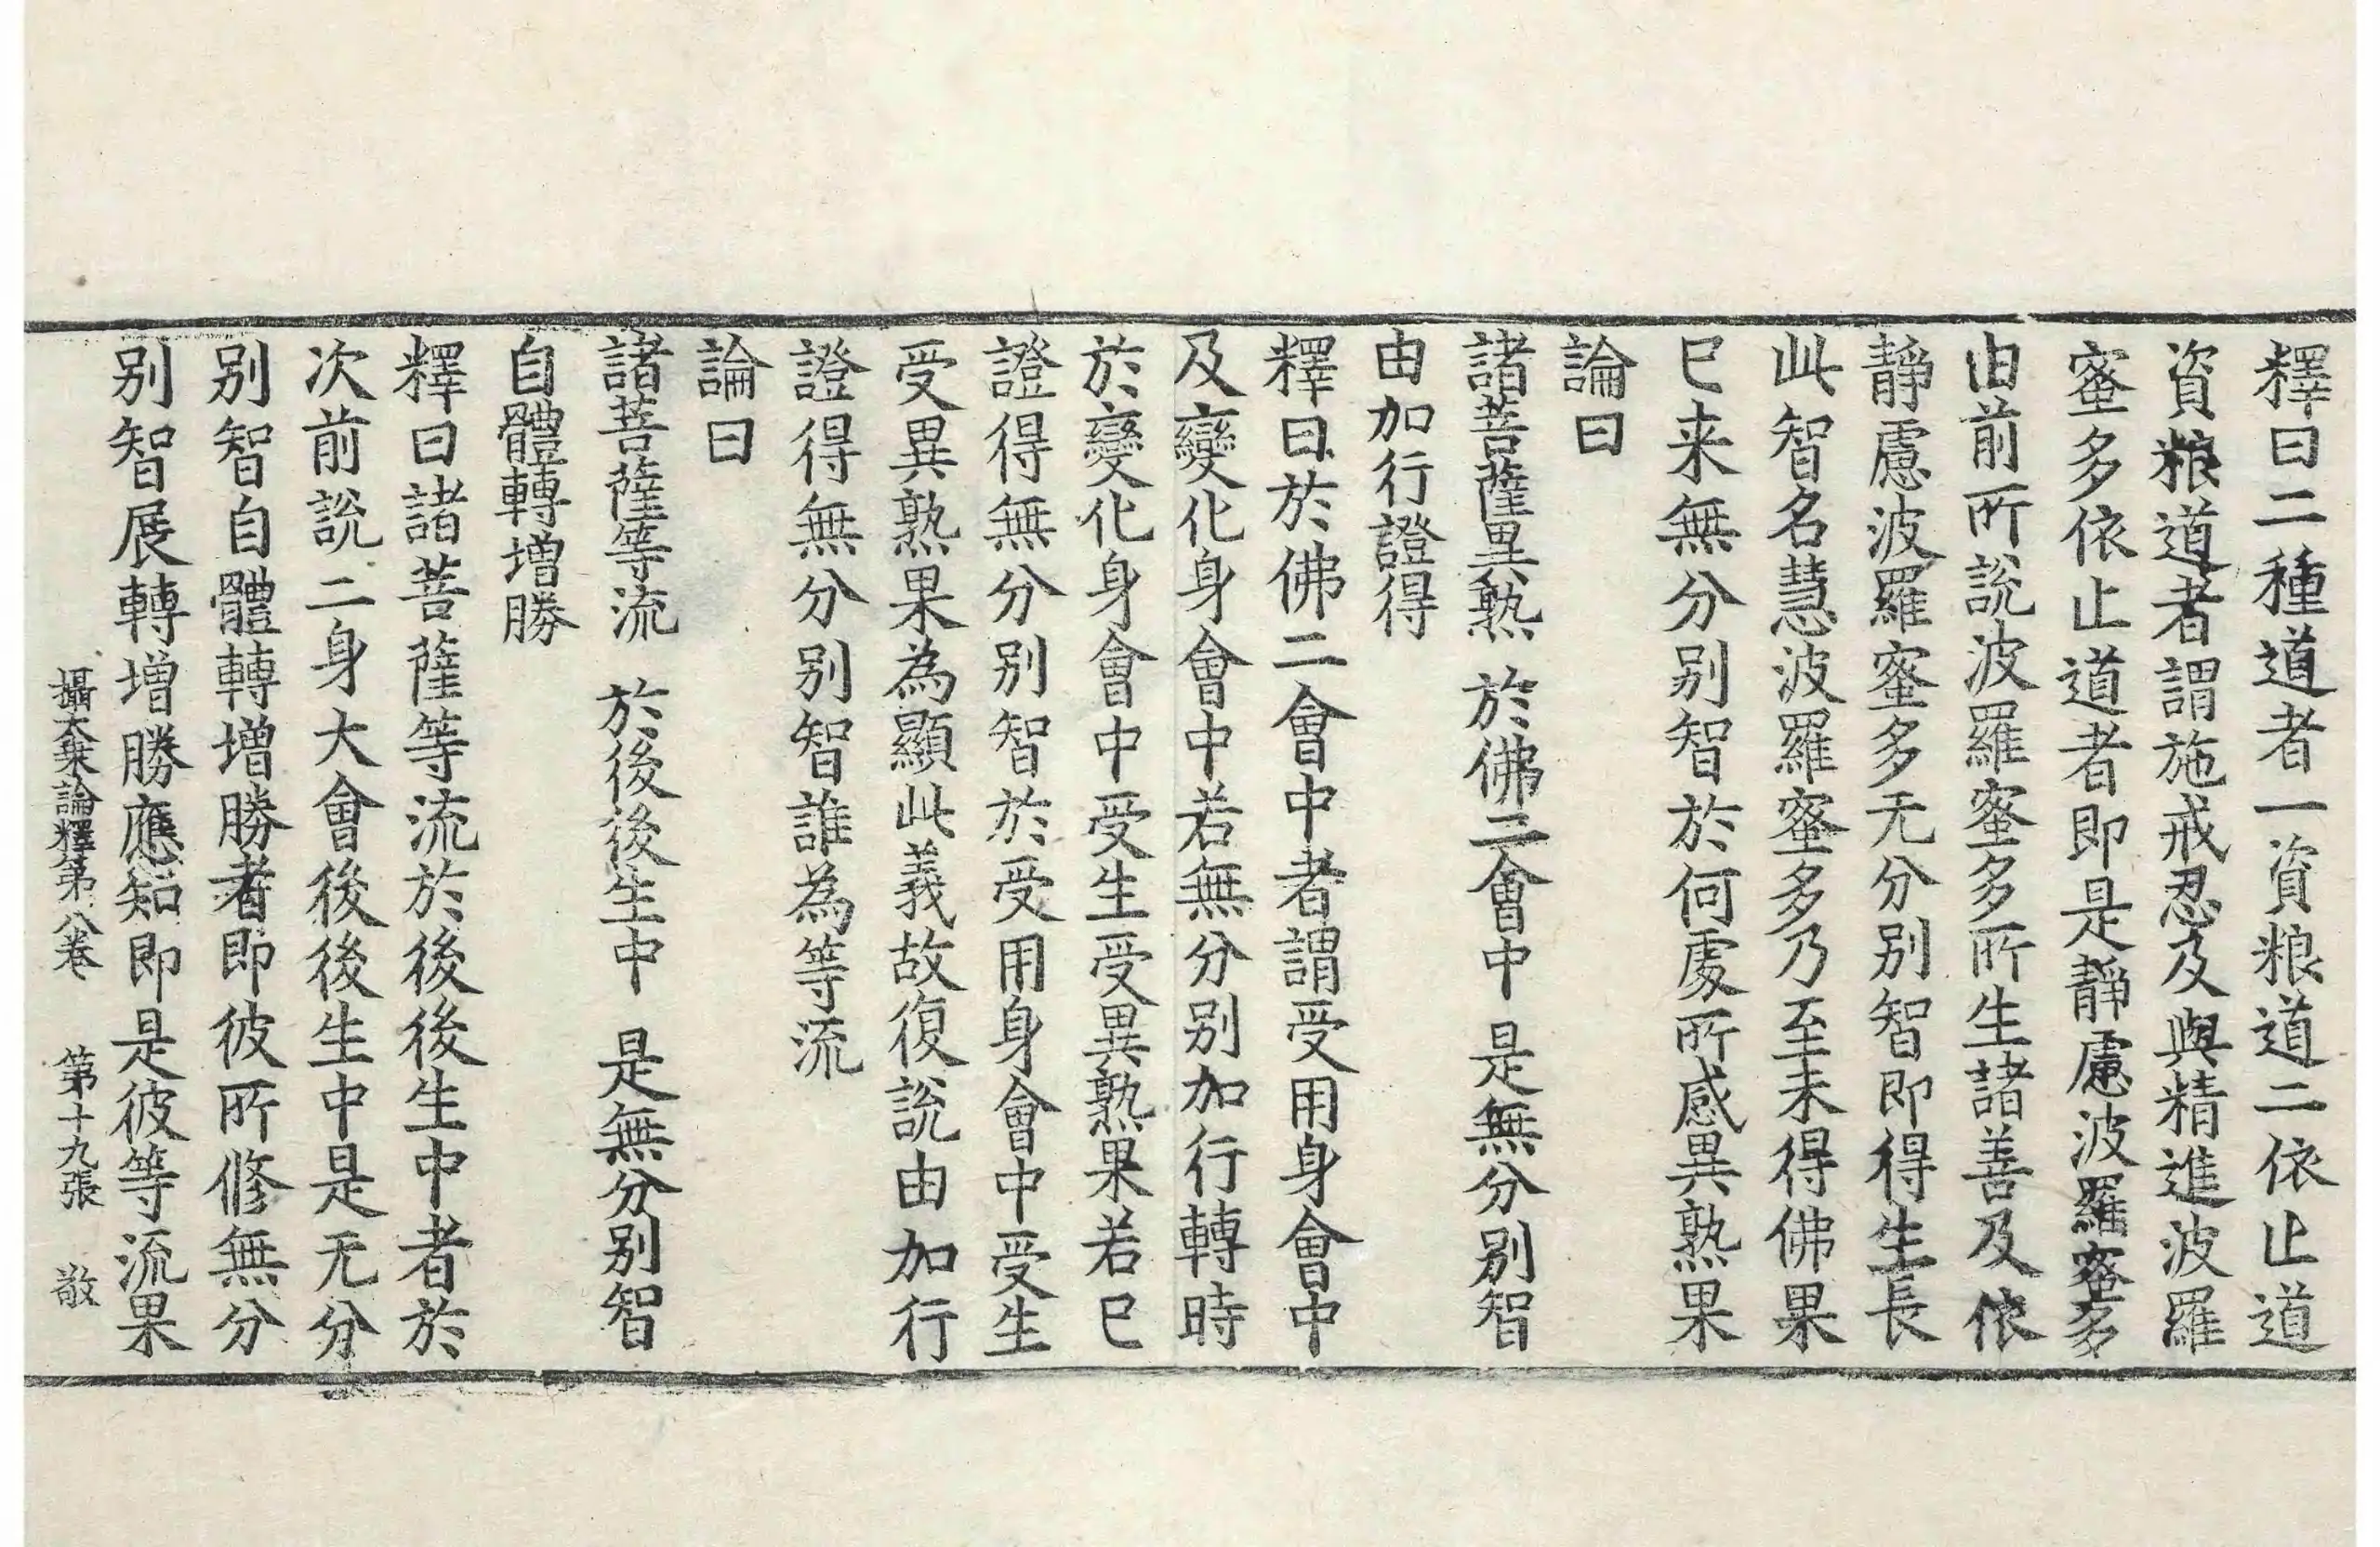 釋曰二種道者一資粮道二依止道
資粮道者謂施戒忍及與精進波羅
蜜多依止道者即是靜慮波羅蜜多
由前所說波羅蜜多所生諸善及依
靜慮波羅蜜多无分別智即得生長
此智名慧波羅蜜多乃至未得佛果
已来無分別智於何處所感異熟果
論曰
諸菩薩異熟 於佛二會中 是無分別智
由加行證得
釋曰於佛二會中者謂受用身會中
及變化身會中若無分別加行轉時
於變化身會中受生受異熟果若已
證得無分別智於受用身會中受生
受異熟果為顯此義故復說由加行
證得無分別智誰為等流
論曰
諸菩薩等流 於後後生中 是無分別智
自體轉增勝
釋曰諸菩薩等流於後後生中者於
次前說二身大會後後生中是无分
別智自體轉增勝者即彼所修無分
別智展轉增勝應知即是彼等流果
攝大乗論釋第八卷 第十九張 敬